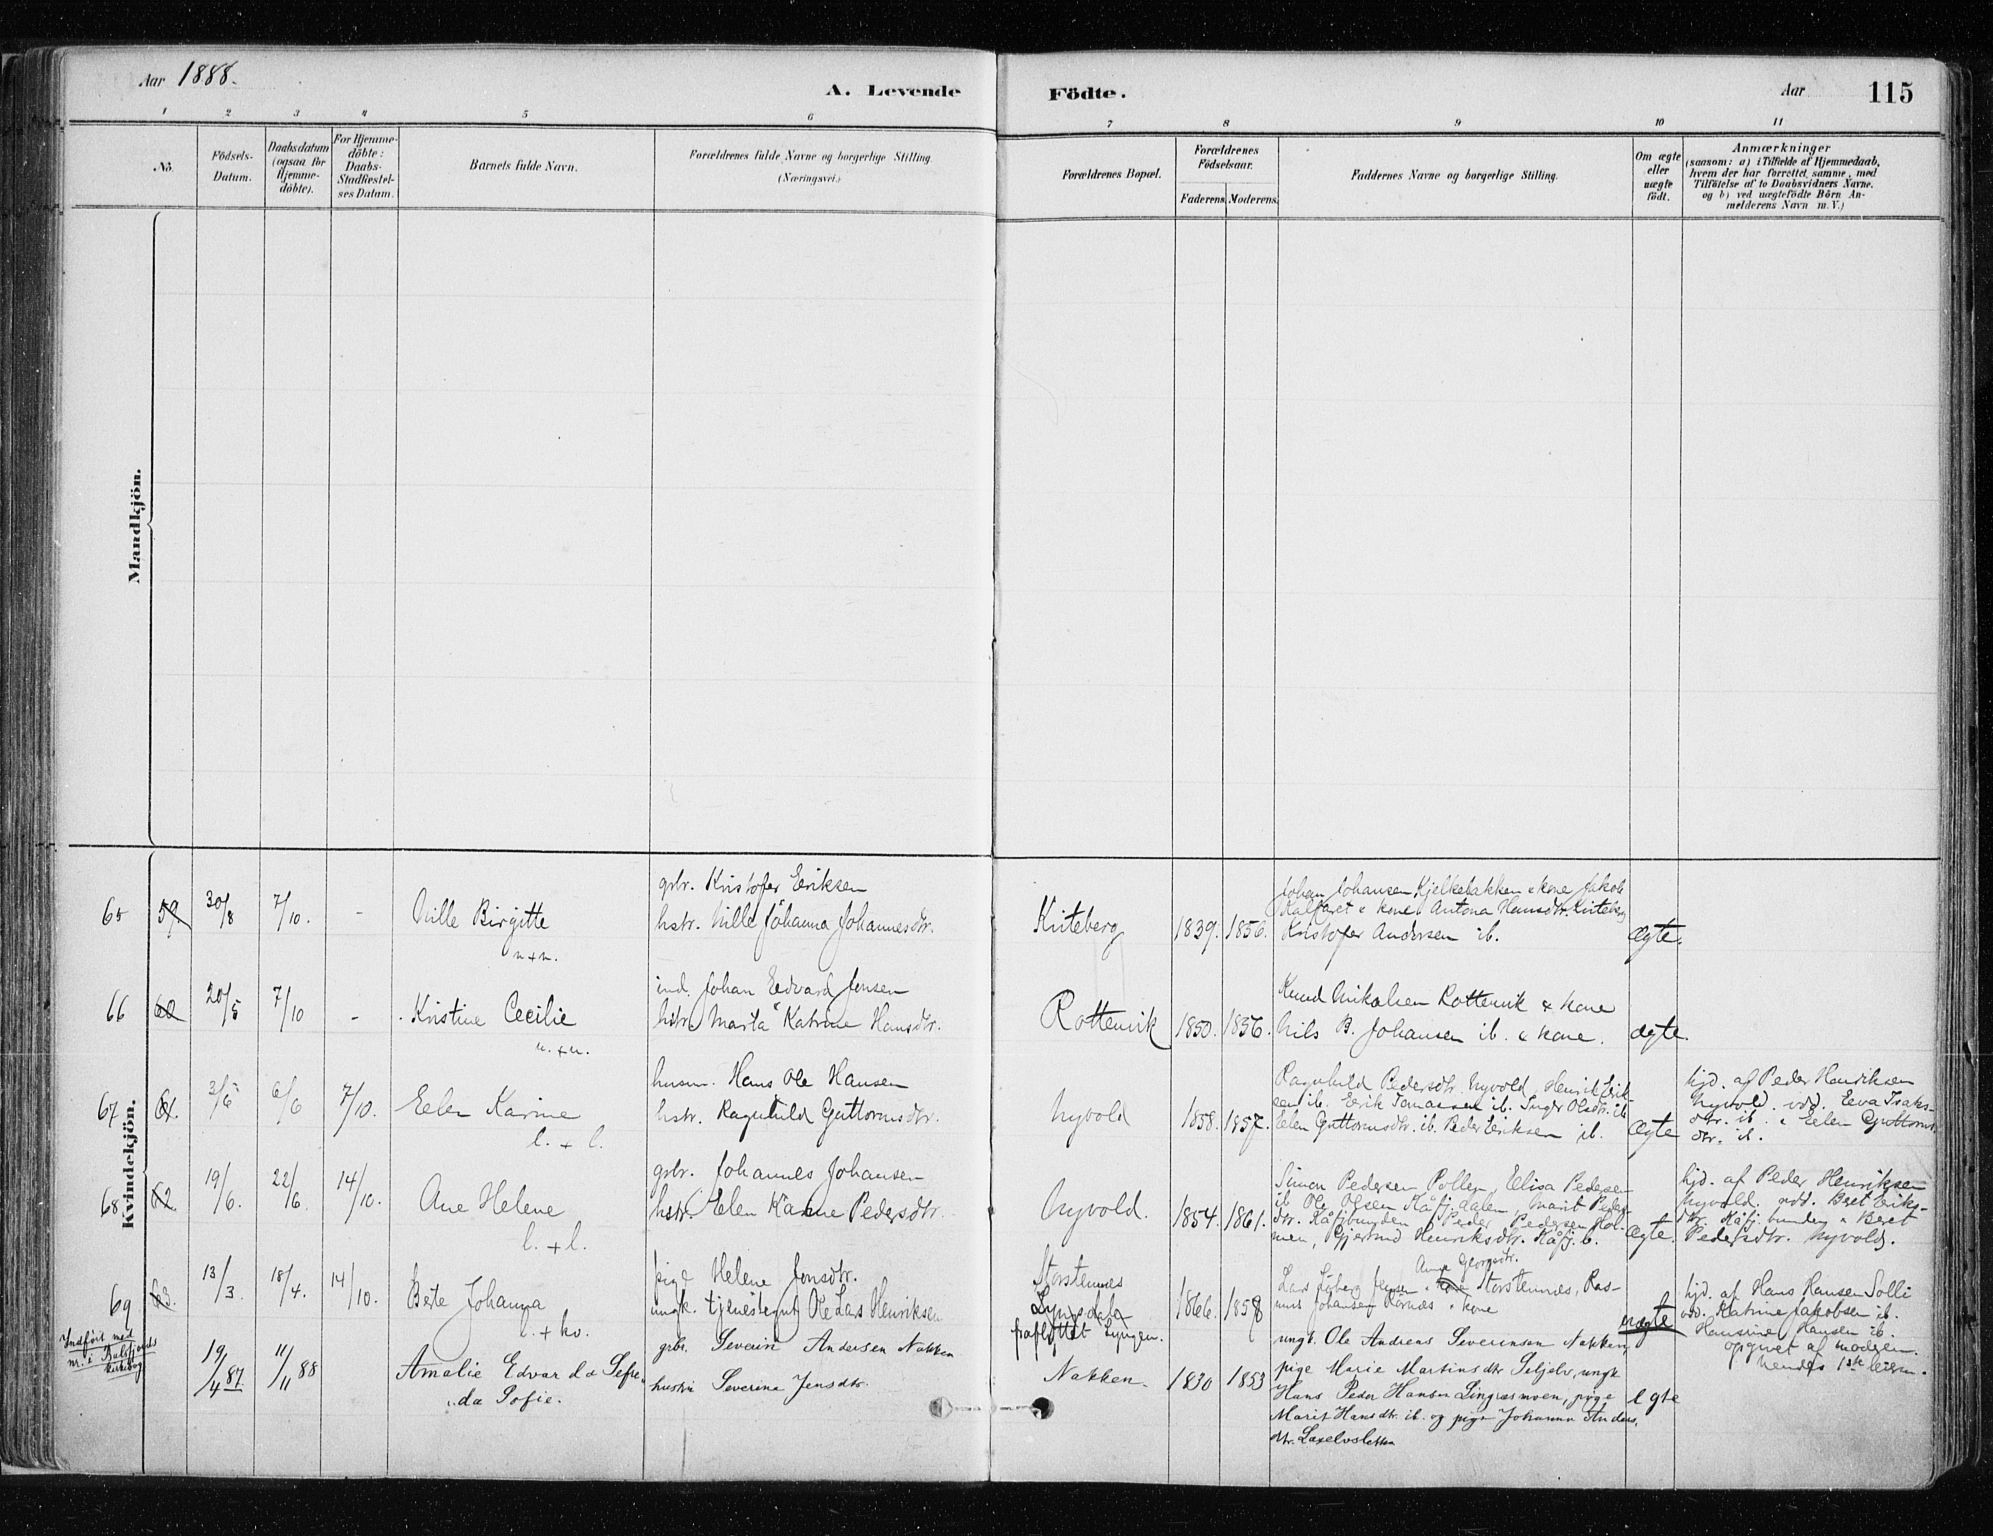 Aar 1888.
A. Levende Födte.
Aar 115
1 2 3 4 5 6 7 8 9 10 11
No.
Födsels-
Datum.
Daabsdatum
(ogsaa for
Hjemme-
döbte).
For Hjemme-
döbte:
Daabs-
Stadfæstel-
ses Datum.
Barnets fulde Navn.
Forældrenes fulde Navne og borgerlige Stilling.
(Næringsvei.)
Forældrenes Bopæl.
Forældrenes
Födselsaar.
Faderens. Moderens.
Faddernes Navne og borgerlige Stilling.
Om ægte
eller
uægte
födt.
Anmærkninger
(saasom: a) i Tilfælde af Hjemmedaab,
hvem der har forrettet samme, med
Tilföielse af to Daabsvidners Navne,
og b) ved uægtefödte Börn An-
melderens Navn m. V.)
Mandkjön.
Kvindekjön.
65 59. 30/8 7/10. -
Nille Birgitte
n + n.
grbr. Kristofer Eriksen
hstr. Nille Johanna Johannesdtr.
Kviteberg
1839. 1856.
Johan Johansen Kjelkebakken & kone Jakob
& kone Antona Hansdtr. Kviteberg
Kristofer Andersen ib.
Ægte.
66 60 20/5 7/10 -
Kristine Cecilie
n. + n.
ind. Johan Edvard Jensen
hstr. Marta Katrine Hansdtr.
Rottenvik
1850. 1856.
Knud Nikolsen Rottenvik & kone
Nils B. Johansen ib. & kone.
ægte.
67 61. 3/5 6/6 7/10.
Elen Karine
l. + l.
husm. Hans Ole Hansen
hstr. Ragnhild Guttormsdtr.
Nyvold
1858. 1857.
Ragnhild Pedersdtr Nyvold, Henrik Erik-
sen ib. Erik Tomassen ib. Inger Olsdtr. ib
Elen Guttormsdtr. ib. Peder Eriksen ib.
Ægte
hjd. af Peder Henriksen
Nyvold. vdd. Eva Isaks-
dtr. ib. & Elen Guttorms-
dtr. ib.
68 62. 19/6. 22/6 14/10.
Ane Helene
l. + l.
grbr. Johannes Johansen
hstr. Elen Karine Pedersdtr.
Nyvold.
1854. 1861.
Simon Pedersen Pollen, Elisa Peders
ib. Ole Olsen Kåfj.dalen, Marit Peders
dtr. Kåfjbunden, Peder Pedersen Hol-
men, Gjertrud Henriksdtr. Kåfj. b.
Ægte.
hjd. af Peder Henriksen
Nyvold. vdd. Beret Eriks-
dtr. Kåfj.bunden & Beret
Pedersdtr. Nyvold.
69 63. 13/3. 18/4. 14/10.
Berte Johanna
l. + kv.
pige Helene Jonsdtr.
ungk. tjenestegut Ole Lars Henriksen
Storstennes
fraflyttet Lyngen.
1866. 1858
Anne Georgsdtr.
Storstennes, Ras-
mus Johansen & kone
uægte
hjd. af Hans Hansen Solli
vdd. Katrine Jakobsen ib.
Hansine Hansen ib.
opgivet af moderen.
hendes 1ste leierm.
Indført med
nr. i Balsfjords
kirkebog
19/4 87 11/11 88
Amalie Edvarda Sefre-
da Sofie.
grbr. Severin Andersen Nakken
hustru Severine Jensdtr.
Nakken.
1830 1853
ungk. Ole Andreas Severinsen Nakken,
pige Marie Martinsdtr Seljelv, ungk
Hans Peder Hansen Lingrasmoen, pige
Marit Hansdtr. ib. og pige Johanna Anders.
dtr. Laxelvsletten
egte